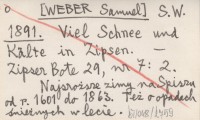 [WEBER Samuel] S. W.
1891. Viel Schnee und
Kälte in Zipsen. —
Zipser Bote 29, nr 7: 2.
Najsroższe zimy na Spiszu
od r. 1601 do 1863. Też o opadach
śnieżnych w lecie.